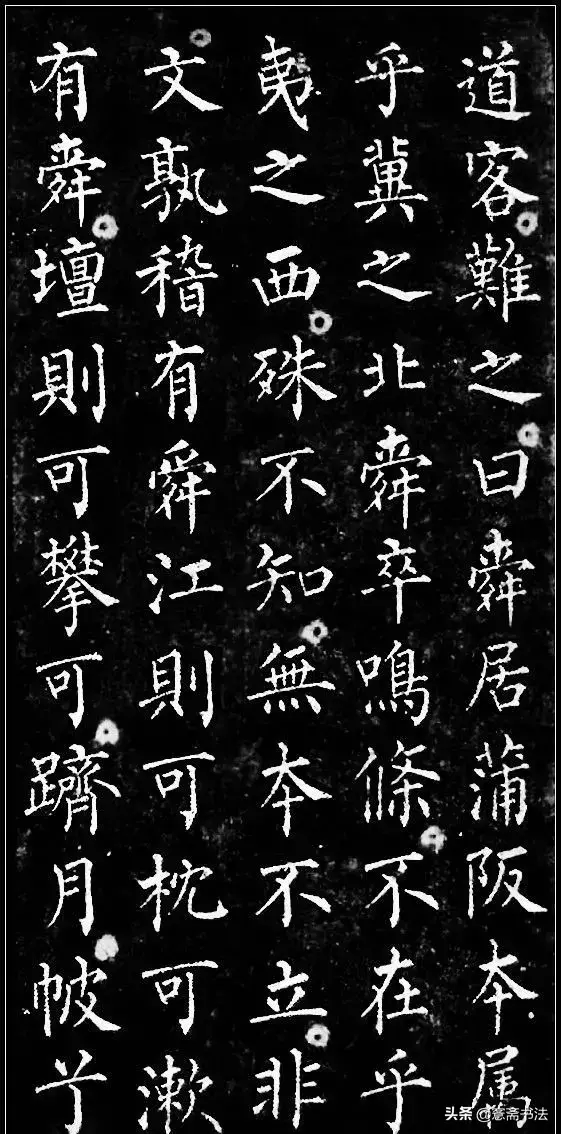 道客難之曰舜居蒲阪本属
乎冀之北舜卒鳴條不在乎
夷之西殊不知無本不立非
文孰稽有舜江則可枕可漱
有舜壇則可攀可躋月帔
头条 @意斋书法